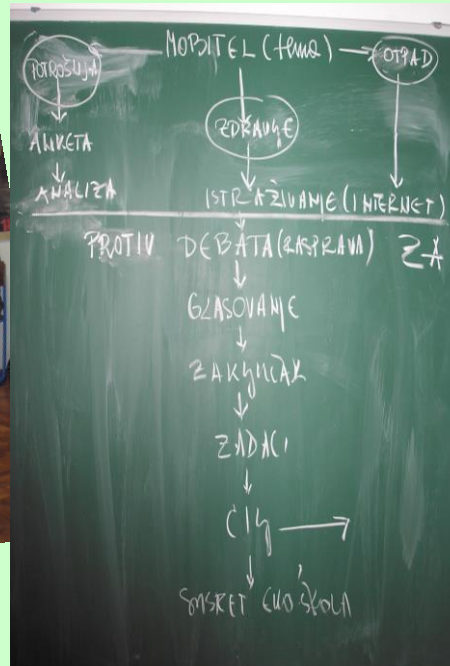 MOBITEL (tema)
POTROŠNJA
OTPAD
ZDRAVLJE
ANKETA
ANALIZA
ISTRAŽIVANJE (INTERNET)
PROTIV DEBATA (RASPRAVA) ZA
GLASOVANJE
ZAKLJUČAK
ZADACI
CILJ
SUSRET EKO ŠKOLA